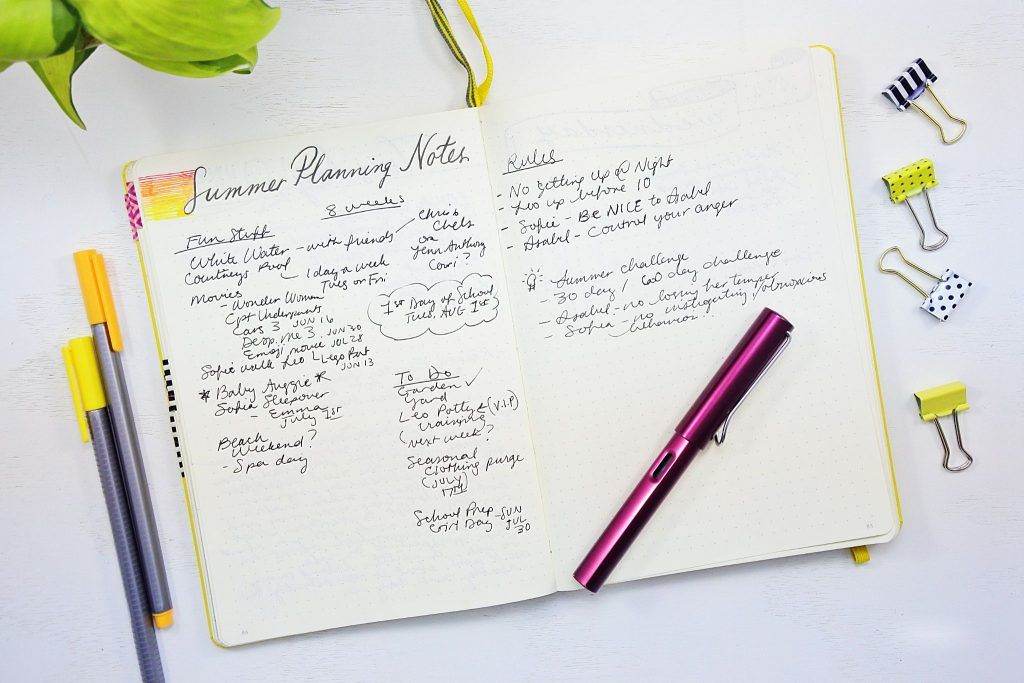 Summer Planning Notes
8 weeks
Fun Stuff
White Water - with friends
Chris
Chels
or
Jenn Anthony
Corri?
Courtneys Pool - 1 day a week
Tues or Fri
Movies
- Wonder Woman
Cpt Underpants
Cars 3 JUN 16
Desp. Me 3 JUN 30
Emoji movie JUL 28
Sofie walk Leo
Lego Part
JUN 13
1st Day of School
Tues, AUG 1st
* Baby Auggie *
Sofia Sleepover
Emma
July 1st
Beach
Weekend?
- Spa day
To Do
Garden ✓
Yard
Leo Potty (V.I.P)
training
(next week?
Seasonal
Clothing purge
(JULY)
17th
School Prep - SUN
Girl Day JUL
30
Rules
- No getting up @ Night
- Leo up before 10
- Sofie - Be NICE to Isabel
- Isabel - Control your anger
- Summer challenge
- 30 day / 60 day challenge
- Isabel - no losing her temper
- Sofia - no instigating /
behavior!!